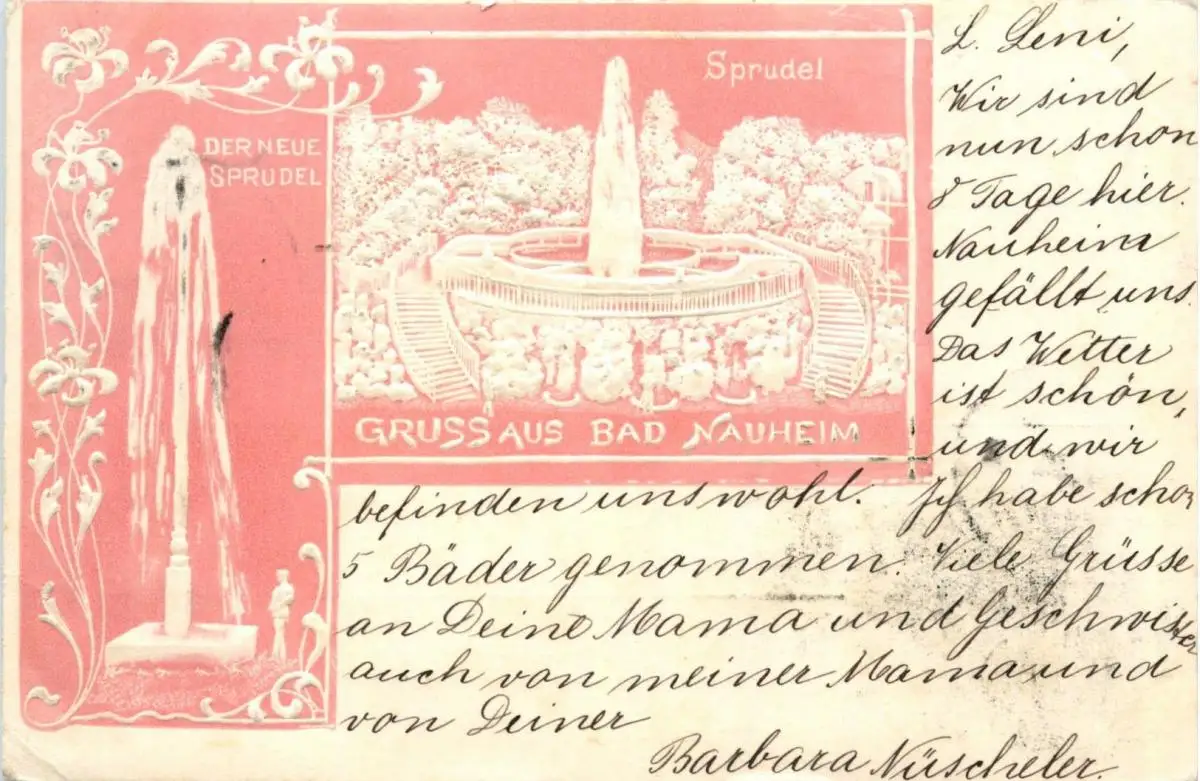 Sprudel
DER NEUE
SPRUDEL
GRUSS AUS BAD NAUHEIM
L. Leni,
Wir sind
nun schon
8 Tage hier.
Nauheim
gefällt uns.
Das Wetter
ist schön,
und wir
befinden uns wohl. Ich habe schon
5 Bäder genommen. Viele Grüsse
an Deine Mama und Geschwister
auch von meiner Mama und
von Deiner
Barbara Nüscheler.